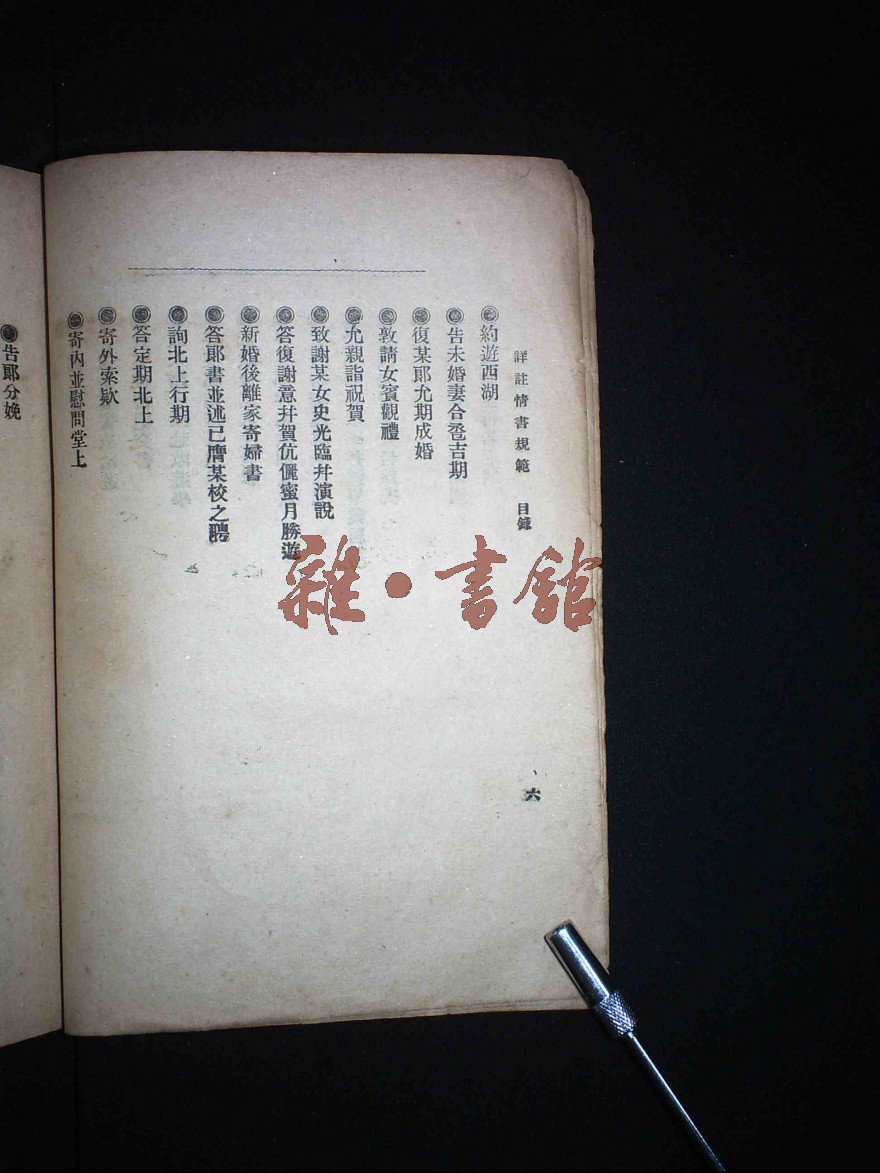 詳註情書規範 目錄
六
◉約遊西湖
◉告未婚妻合卺吉期
◉復某郞允期成婚
◉敦請女賓觀禮
◉允親詣祝賀
◉致謝某女史光臨幷演說
◉答復謝意幷賀伉儷蜜月勝遊
◉新婚後離家寄婦書
◉答郞書並述已膺某校之聘
◉詢北上行期
◉答定期北上
◉寄外索欵
◉寄內並慰問堂上
◉告郞分娩
雜·書館